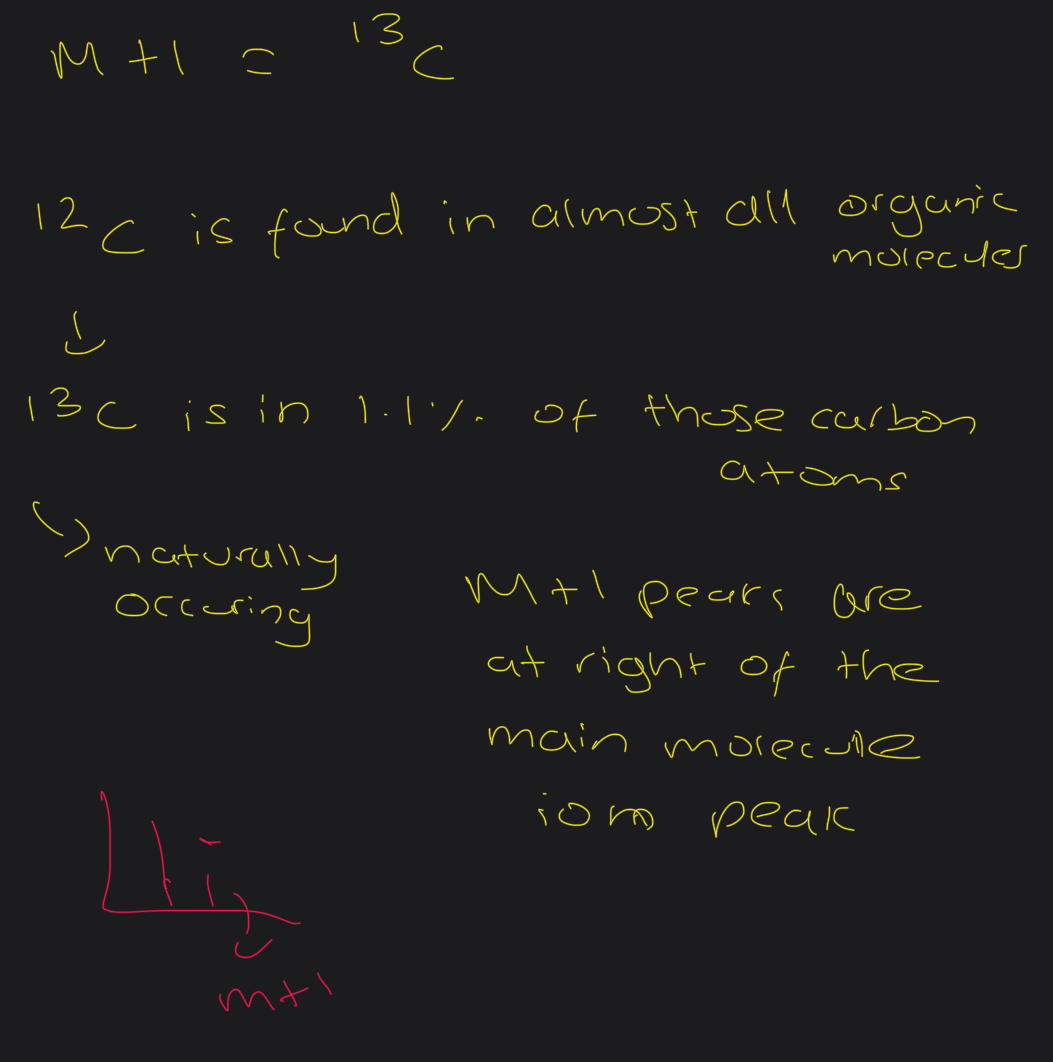 M+1 = ¹³C
¹²C is found in almost all organic
molecules
↓
¹³C is in 1.1% of those carbon
atoms
↳ naturally
occuring
M+1 peaks are
at right of the
main molecule
ion peak
m+1